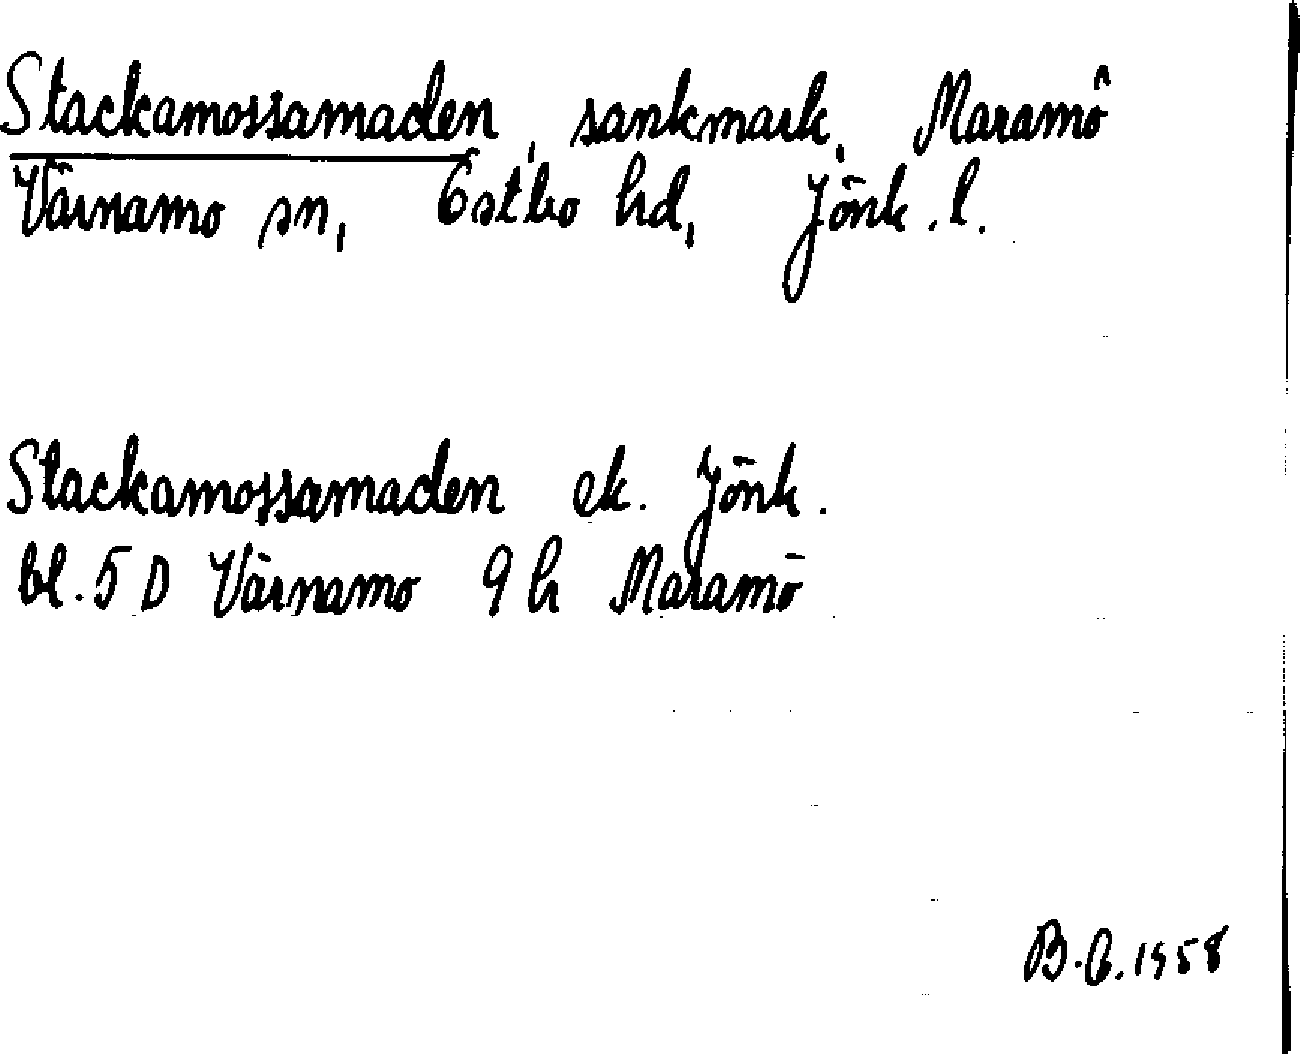 Stackamossamaden, sankmark, Maramö
Värnamo sn, Östbo hd, Jönk.l.
Stackamossamaden ek. Jönk.
bl.5 D Värnamo 9 h Maramö
B.G.1958